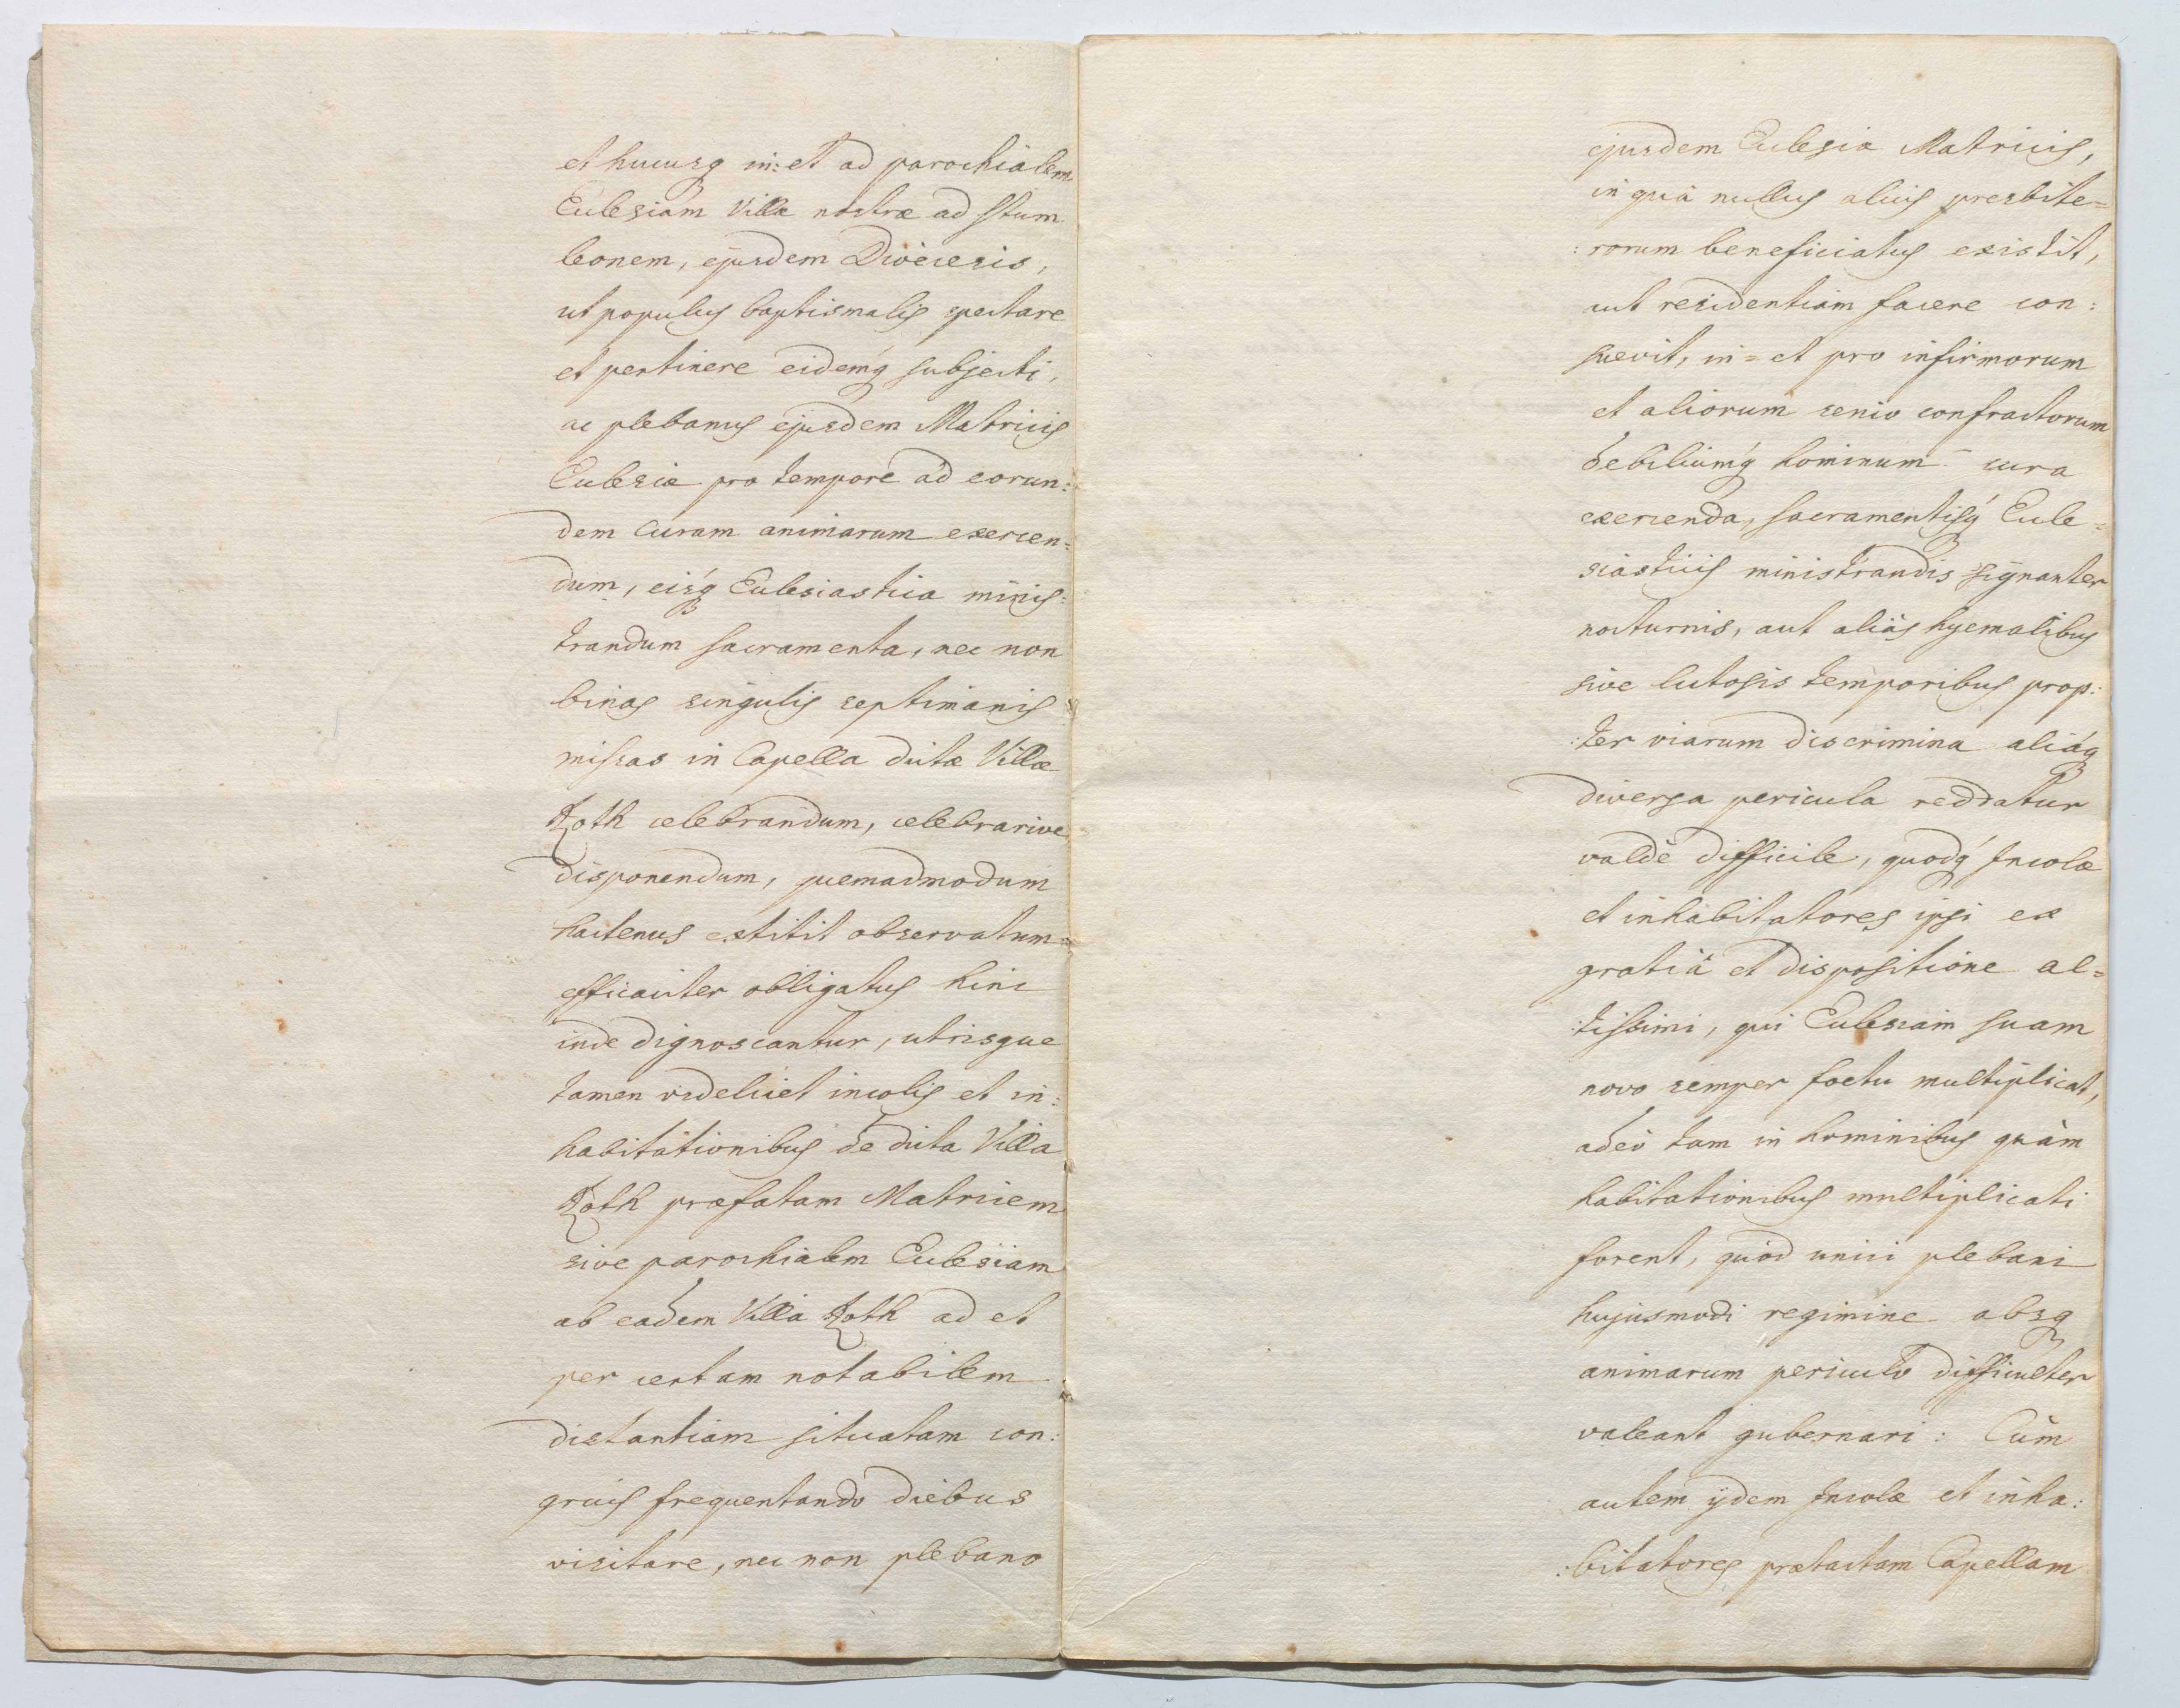 et hucusq in: et ad parochialem
Ecclesiam Villæ nostræ ad Stum
Leonem, ejusdem Dioecesis,
ut populus baptismalis spectare
et pertinere eidemq́ subjecti,
ac plebanus ejusdem Matricis
Ecclesiæ pro tempore ad eorun:
dem curam animarum exercen=
dum, eisq́ Ecclesiastica minis:
trandum sacramenta, nec non
binas singulis septimanis
missas in Capella dictæ Villæ
Roth celebrandum, celebrarive
disponendum, quemadmodum
hactenus extitit observatum
efficaciter obligatus hinc
inde dignoscantur, utrisque
tamen videlicet incolis et in:
habitationibus de dicta Villa
Roth præfatam Matricem
sive parochialem Ecclesiam
ab eadem Villa Roth ad et
per certam notabilem
distantiam situatam con:
gruis frequentando diebus
visitare, nec non plebano
ejusdem Ecclesiæ Matricis,
in quâ nullus alius presbite=
:rorum beneficiatus existit,
aut residentiam facere con:
suevit, in= et pro infirmorum
et aliorum senio confractorum
debiliumq́ hominum cura
exercenda, sacramentisq́ Eccle=
siasticis ministrandis signanter
nocturnis, aut aliàs hyemalibus
sive lutosis temporibus prop:
:ter viarum discrimina aliáq
diversa pericula reddatur
valdè difficile, quodq́ Incolæ
et inhabitatores ipsi ex
gratiâ et dispositione al=
:tissimi, qui Ecclesiam suam
novo semper foetu multiplicat,
adeò tam in hominibus quàm
habitationibus multiplicati
forent, quòd unici plebani
hujusmodi regimine absq
animarum periculo difficulter
valeant gubernari: Cùm
autem ijdem Incolæ et inha:
:bitatores prætactam Capellam